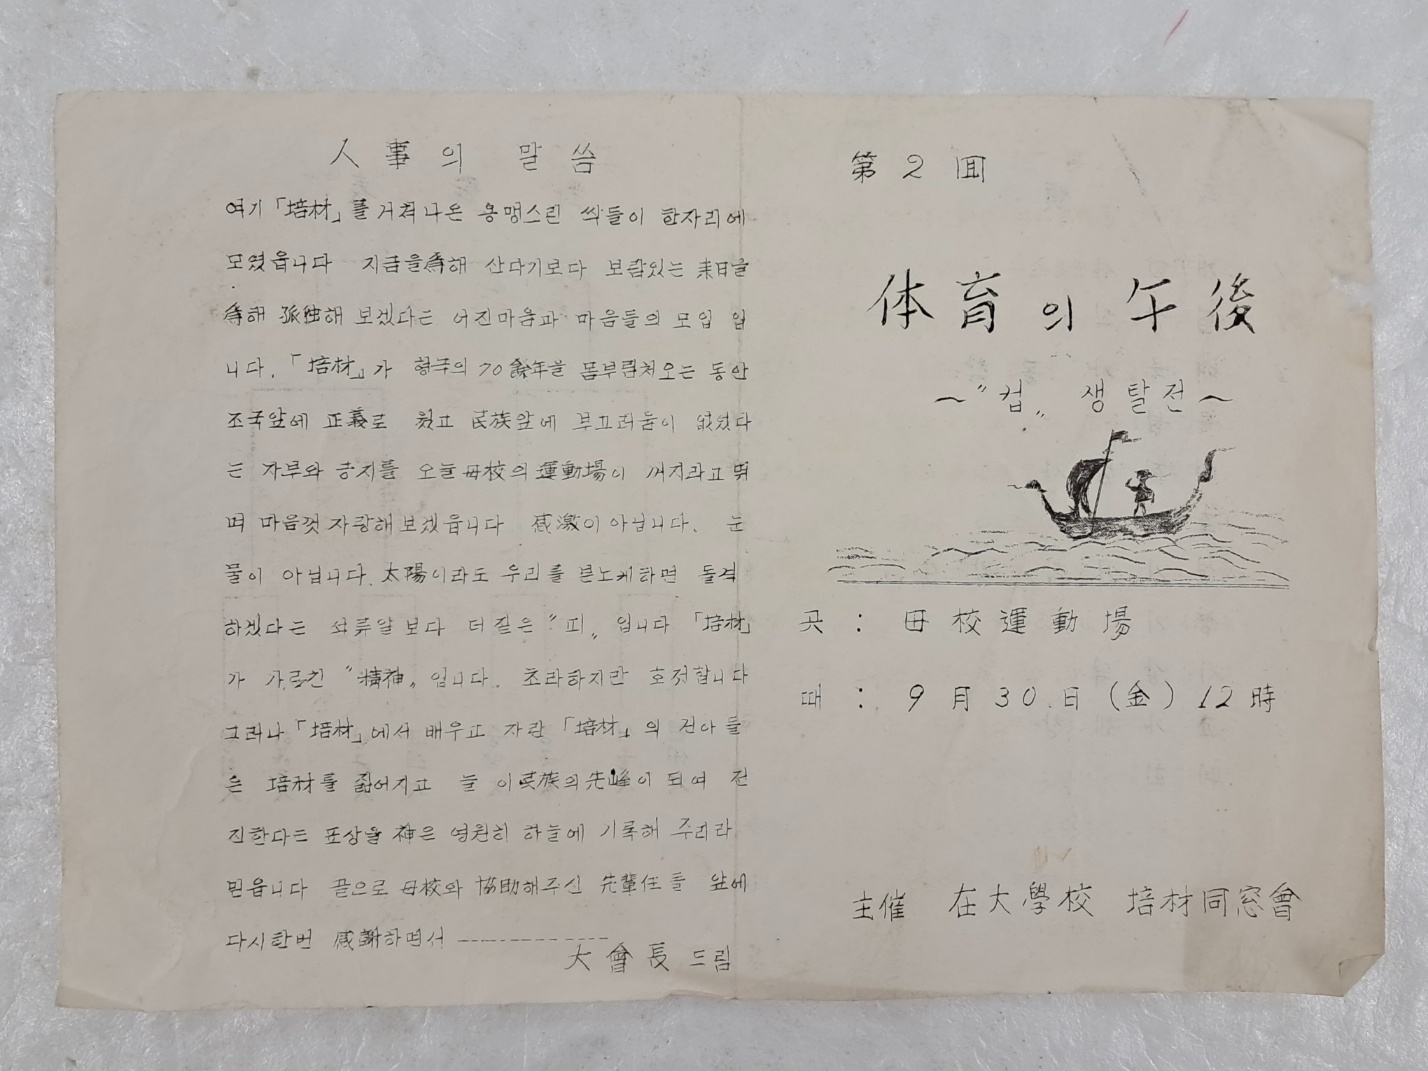 人事의 말씀
여기「培材」를 거쳐나온 용맹스런 싹들이 한자리에
모였읍니다 지금을 爲해 산다기보다 보람있는 来日을
爲해 孤独해 보겠다는 어진마음과 마음들의 모임 입
니다. 「培材」가 형극의 70餘年을 몸부림쳐오는 동안
조국앞에 正義로 웠고 民族앞에 부끄러움이 없었다
는 자부와 긍지를 오늘 母校의 運動場이 꺼지라고 뛰
며 마음껏 자랑해 보겠읍니다 感激이 아닙니다. 눈
물이 아닙니다. 太陽이라도 우리를 분노케하면 돌격
하겠다는 석류알 보다 더 짙은 〝피〟입니다 「培材」
가 가르친 〝精神〟입니다. 초라하지만 호젓합니다
그러나「培材」에서 배우고 자란 「培材」의 건아 들
은 培材를 짊어지고 늘 이 民族의 先峰이 되여 전
진한다는 표상을 神은 영원히 하늘에 기록해 주리라
믿읍니다 끝으로 母校와 協助해주신 先輩任들 앞에
다시한번 感謝하면서 ------------
大會長 드림
第 2 回
体育의 午後
~〝컵〟 쟁탈전~
곳 : 母校運動場
때 : 9月 30.日 (金) 12時
主催 在大學校 培材同窓會